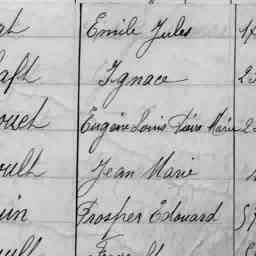 at Emile Jules
aft Ignace
ouet Eugène Louis Marie
oult Jean Marie
uin Prosper Edouard
ult